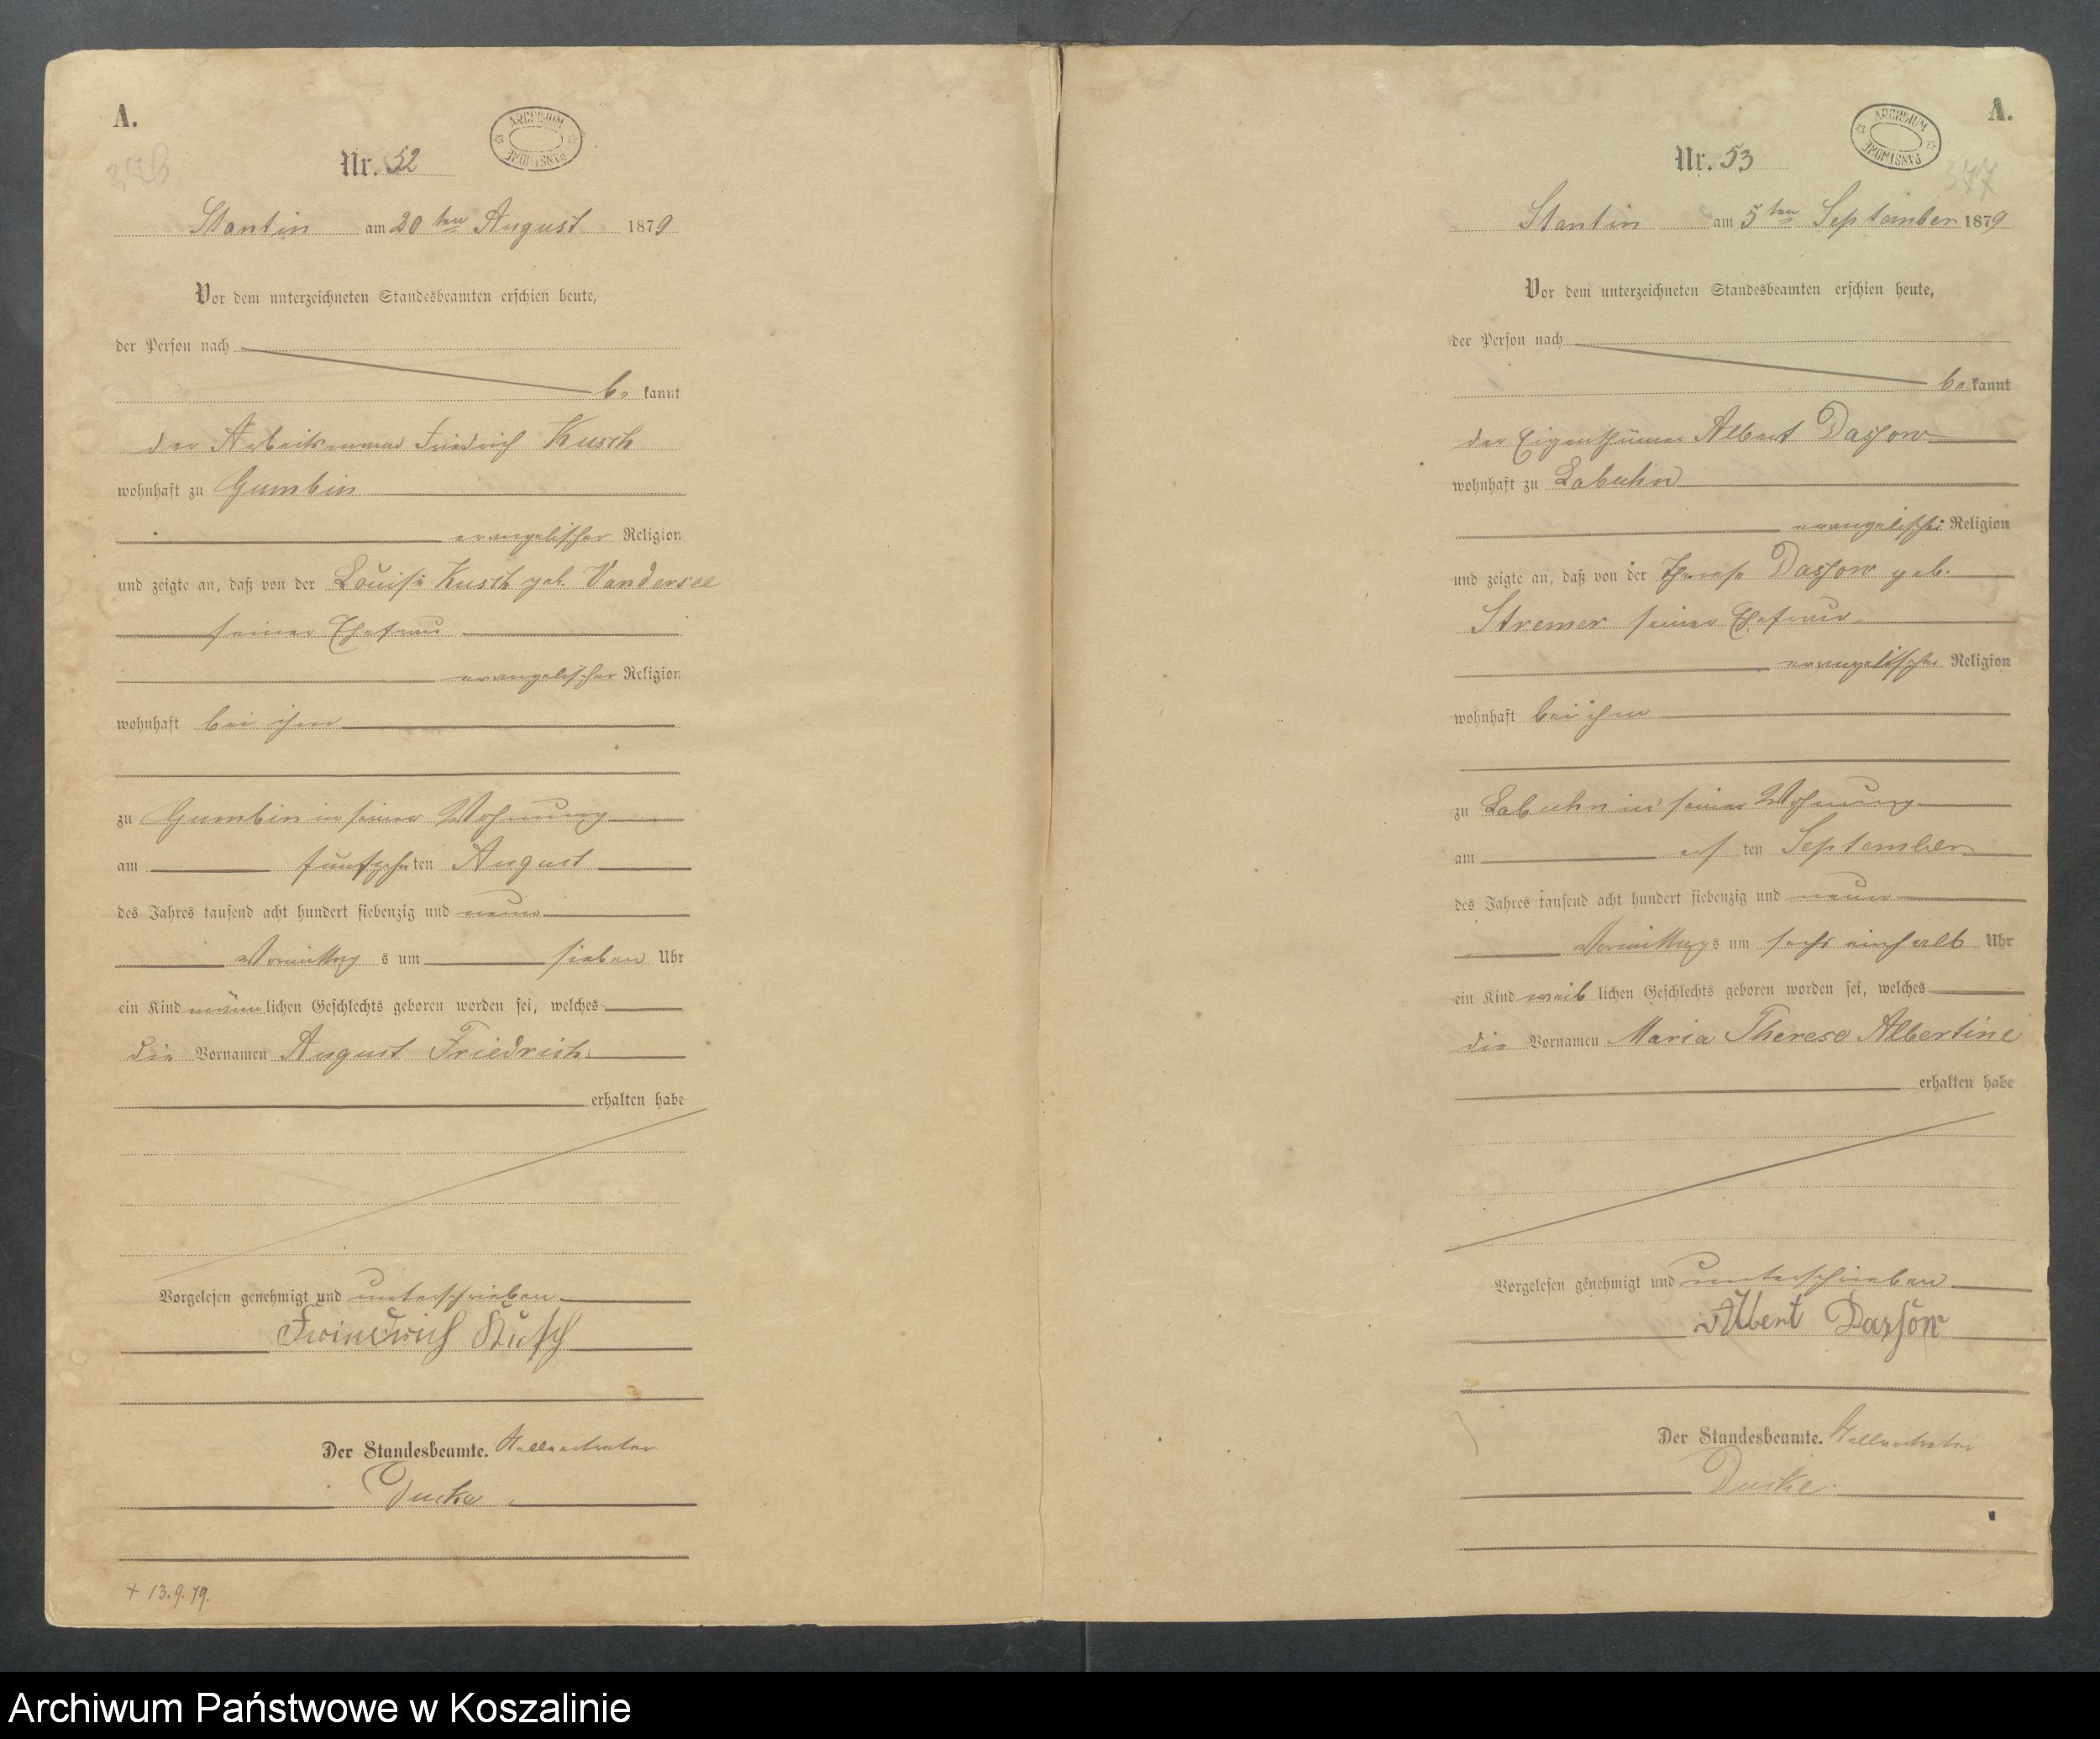 A.
376
Nr. 52
ARCHIWUM PAŃSTWOWE
Stantin am 20ten August 1879
Vor dem unterzeichneten Standesbeamten erschien heute,
der Person nach
be kannt
der Arbeitsmann Friedrich Kusch
wohnhaft zu Gumbin
evangelischer Religion
und zeigte an, daß von der Louise Kusch geb. Vandersee
seiner Ehefrau
evangelischer Religion
wohnhaft bei ihm
zu Gumbin in seiner Wohnung
am fünfzehn ten August
des Jahres tausend acht hundert siebenzig und neun
Vormittag s um sieben Uhr
ein Kind männ lichen Geschlechts geboren worden sei, welches
die Vornamen August Friedrich
erhalten habe
Vorgelesen genehmigt und unterschrieben
Friedrich Kusch
Der Standesbeamte.
+ 13.9.79.
A.
377
Nr. 53
ARCHIWUM PAŃSTWOWE
Stantin am 5ten September 1879
Vor dem unterzeichneten Standesbeamten erschien heute,
der Person nach
be kannt
der Eigenthümer Albert Dassow
wohnhaft zu Labuhn
evangelischer Religion
und zeigte an, daß von der Therese Dassow geb.
Stremer seiner Ehefrau
evangelischer Religion
wohnhaft bei ihm
zu Labuhn in seiner Wohnung
am ten September
des Jahres tausend acht hundert siebenzig und neun
Vormittags um sechs einhalb Uhr
ein Kind weib lichen Geschlechts geboren worden sei, welches
die Vornamen Maria Therese Albertine
erhalten habe
Vorgelesen genehmigt und unterschrieben
Albert Dassow
Der Standesbeamte.
Archiwum Państwowe w Koszalinie